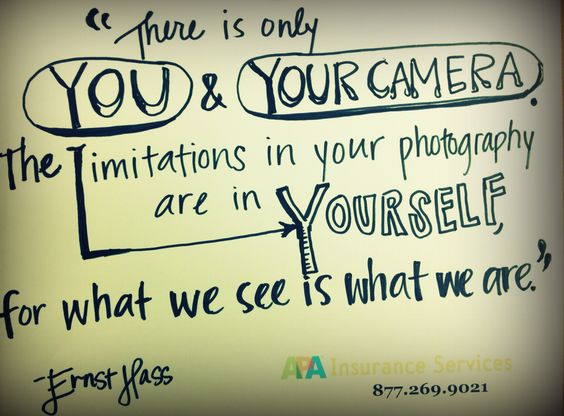 "There is only
YOU & YOUR CAMERA.
The Limitations in your photography
are in YOURSELF,
for what we see is what we are."
-Ernst Hass
APA Insurance Services
877.269.9021